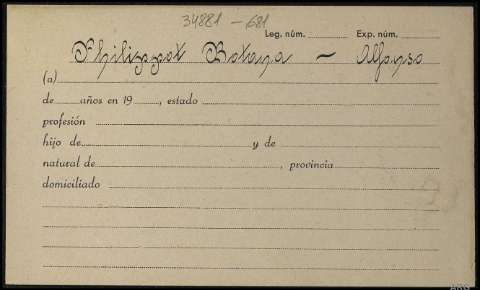 34881 - 681
Leg. núm. Exp. núm.
Philippot Botana — Alfonso
(a)
de años en 19 , estado
profesión
hijo de y de
natural de , provincia
domiciliado